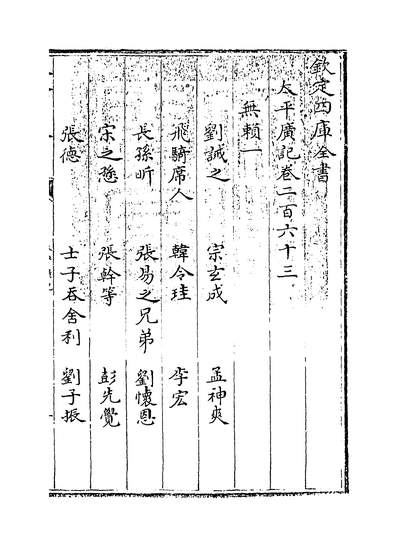 欽定四庫全書
太平廣記卷二百六十三
無賴一
劉誠之　宗玄成　孟神爽
飛騎席人　韓令珪　李宏
長孫昕　張易之兄弟　劉懷恩
宋之愻　張幹等　彭先覺
張德　士子吞舍利　劉子振